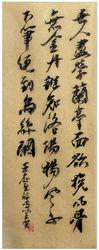 世人盡學蘭亭面欲換凡骨
無金丹誰知洛陽楊風子
下筆便到烏絲闌